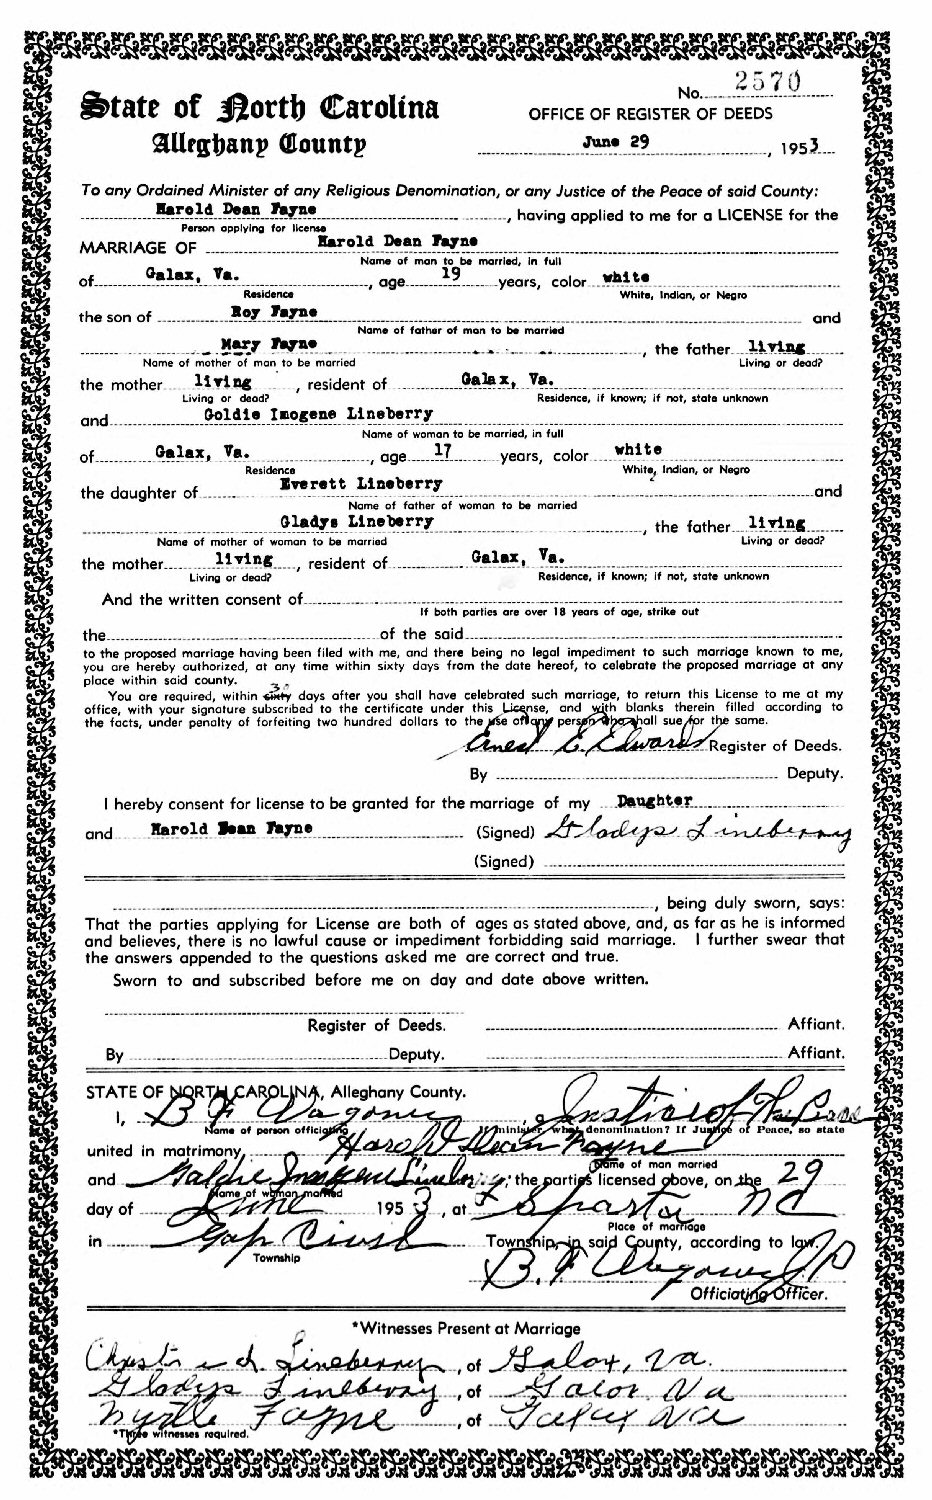 No. 2570
State of North Carolina
OFFICE OF REGISTER OF DEEDS
Alleghany County
June 29, 1953
To any Ordained Minister of any Religious Denomination, or any Justice of the Peace of said County:
Harold Dean Fayne, having applied to me for a LICENSE for the
Person applying for license
MARRIAGE OF Harold Dean Fayne
Name of man to be married, in full
of Galax, Va., age 19 years, color white
Residence White, Indian, or Negro
the son of Roy Fayne and
Name of father of man to be married
Mary Fayne, the father living
Name of mother of man to be married Living or dead?
the mother living, resident of Galax, Va.
Living or dead? Residence, if known; if not, state unknown
and Goldie Imogene Lineberry
Name of woman to be married, in full
of Galax, Va., age 17 years, color white
Residence White, Indian, or Negro
the daughter of Everett Lineberry and
Name of father of woman to be married
Gladys Lineberry, the father living
Name of mother of woman to be married Living or dead?
the mother living, resident of Galax, Va.
Living or dead? Residence, if known; if not, state unknown
And the written consent of
If both parties are over 18 years of age, strike out
the of the said
to the proposed marriage having been filed with me, and there being no legal impediment to such marriage known to me,
you are hereby authorized, at any time within sixty days from the date hereof, to celebrate the proposed marriage at any
place within said county.
30
You are required, within sixty days after you shall have celebrated such marriage, to return this License to me at my
office, with your signature subscribed to the certificate under this License, and with blanks therein filled according to
the facts, under penalty of forfeiting two hundred dollars to the use of any person who shall sue for the same.
Ernest E. Edwards Register of Deeds.
By Deputy.
I hereby consent for license to be granted for the marriage of my Daughter
and Harold Dean Fayne (Signed) Gladys Lineberry
(Signed)
, being duly sworn, says:
That the parties applying for License are both of ages as stated above, and, as far as he is informed
and believes, there is no lawful cause or impediment forbidding said marriage. I further swear that
the answers appended to the questions asked me are correct and true.
Sworn to and subscribed before me on day and date above written.
Register of Deeds. Affiant.
By Deputy. Affiant.
STATE OF NORTH CAROLINA, Alleghany County.
I, B F Wagoner, a Justice of The Peace
Name of person officiating If minister, what denomination? If Justice of Peace, so state
united in matrimony, Harold Dean Fayne
Name of man married
and Goldie Imogene Lineberry, the parties licensed above, on the 29
Name of woman married
day of June 1953, at Sparta NC
Place of marriage
in Gap Civil Township, in said County, according to law.
Township
B. F. Wagoner J P
Officiating Officer.
*Witnesses Present at Marriage
Lineberry, of Galax, Va.
Gladys Lineberry, of Galax Va
Myrtle Fayne, of Galax Va
*Three witnesses required.